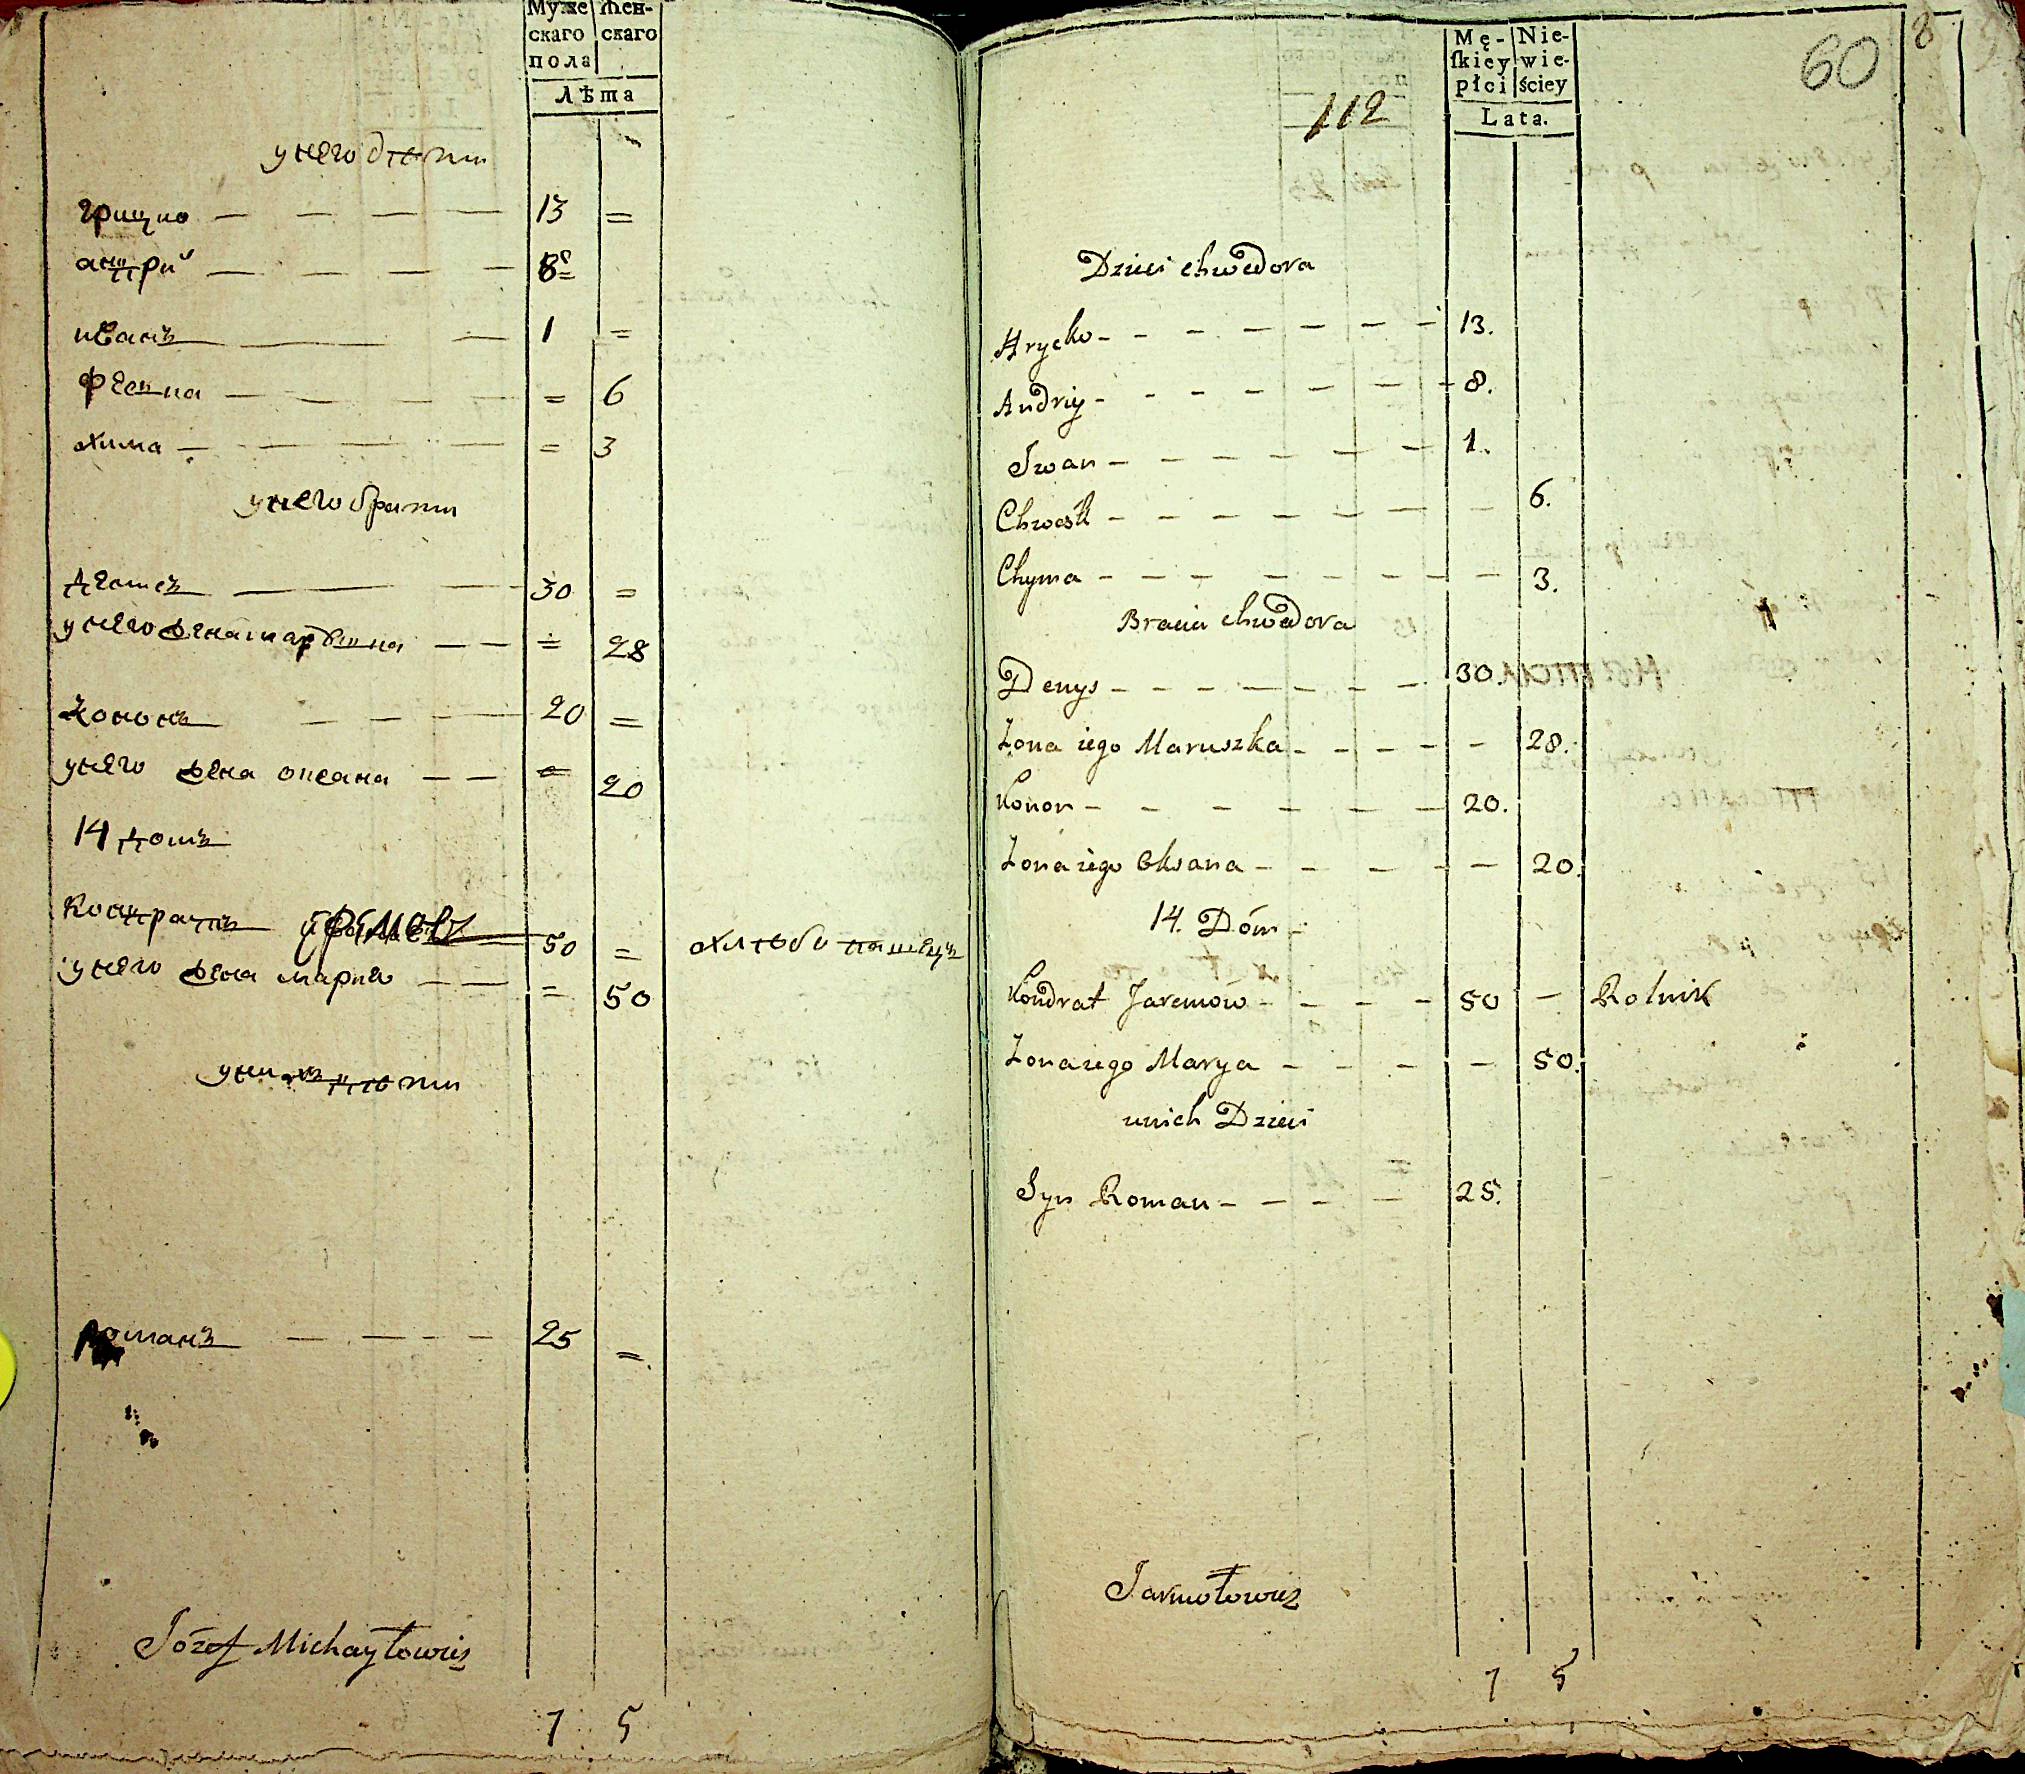 Муже Жен-
скаго скаго
пола
Лѣта
у него дѣти
грицко — — — — 13 =
андрий — — — — 8 =
иванъ — — — 1 =
Феська — — — — = 6
хима — — — — — = 3
у него брати
денисъ — — — 30 =
у него жена марушка — — = 28
Кононъ — — — 20 =
у него жена оксана — — = 20
14 домъ
Кондратъ 50 = хлѣбопашецъ
у него жена мария — — = 50
у нихъ дѣти
Романъ — — — — 25 =
Józef Michayłowicz
7 5
60
8
112
Mę- Nie-
skiey wie-
płci ściey
Lata.
Dzieci Chwedora
Hrycko - - - - - - - 13.
Andriy - - - - - - - 8.
Iwan - - - - - - - 1.
Chweśka - - - - - - - 6.
Chyma - - - - - - - - 3.
Bracia Chwedora
Denys - - - - - - - 30.
Żona iego Maruszka - - - - - 28.
Konon - - - - - - 20.
Żona iego Oksana - - - - - 20.
14. Dóm -
Kondrat Jaremow - - - - 50 — Rolnik
Żona iego Marya - - - - 50.
u nich Dzieci
Syn Roman - - - - 25.
Jarmołowicz
7 5